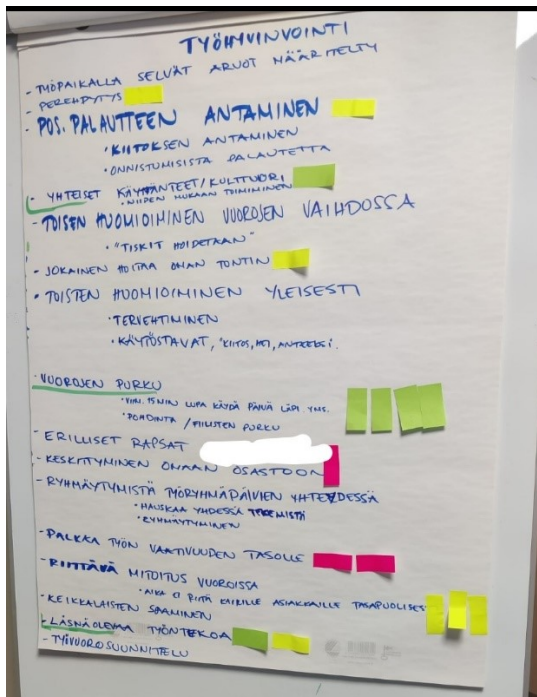 TYÖHYVINVOINTI
- TYÖPAIKALLA SELVÄT ARVOT MÄÄRITELTY
- PEREHDYTYS
- POS. PALAUTTEEN ANTAMINEN
• KIITOKSEN ANTAMINEN
• ONNISTUMISISTA PALAUTETTA
- YHTEISET KÄYTÄNTEET/KULTTUURI
• NIIDEN MUKAAN TOIMIMINEN
- TOISEN HUOMIOIMINEN VUOROJEN VAIHDOSSA
• "TISKIT HOIDETAAN"
- JOKAINEN HOITAA OMAN TONTIN
• TOISTEN HUOMIOIMINEN YLEISESTI
• TERVEHTIMINEN
• KÄYTÖSTAVAT, "KIITOS, HEI, ANTEEKSI.
- VUOROJEN PURKU
• VIIM. 15 MIN LUPA KÄYDÄ PÄIVÄ LÄPI YMS.
• POHDINTA / FIILISTEN PURKU
- ERILLISET RAPSAT
- KESKITTYMINEN OMAAN OSASTOON
- RYHMÄYTYMISTÄ TYÖRYHMÄPÄIVIEN YHTEYDESSÄ
• HAUSKAA YHDESSÄ TEKEMISTÄ
• RYHMÄYTYMINEN
- PALKKA TYÖN VAATIVUUDEN TASOLLE
- RIITTÄVÄ MITOITUS VUOROISSA
• AIKA EI RIITÄ KAIKILLE ASIAKKAILLE TASAPUOLISES
- KEIKKALAISTEN SAAMINEN
- LÄSNÄOLEVAA TYÖNTEKOA
- TYÖVUOROSUUNNITELU